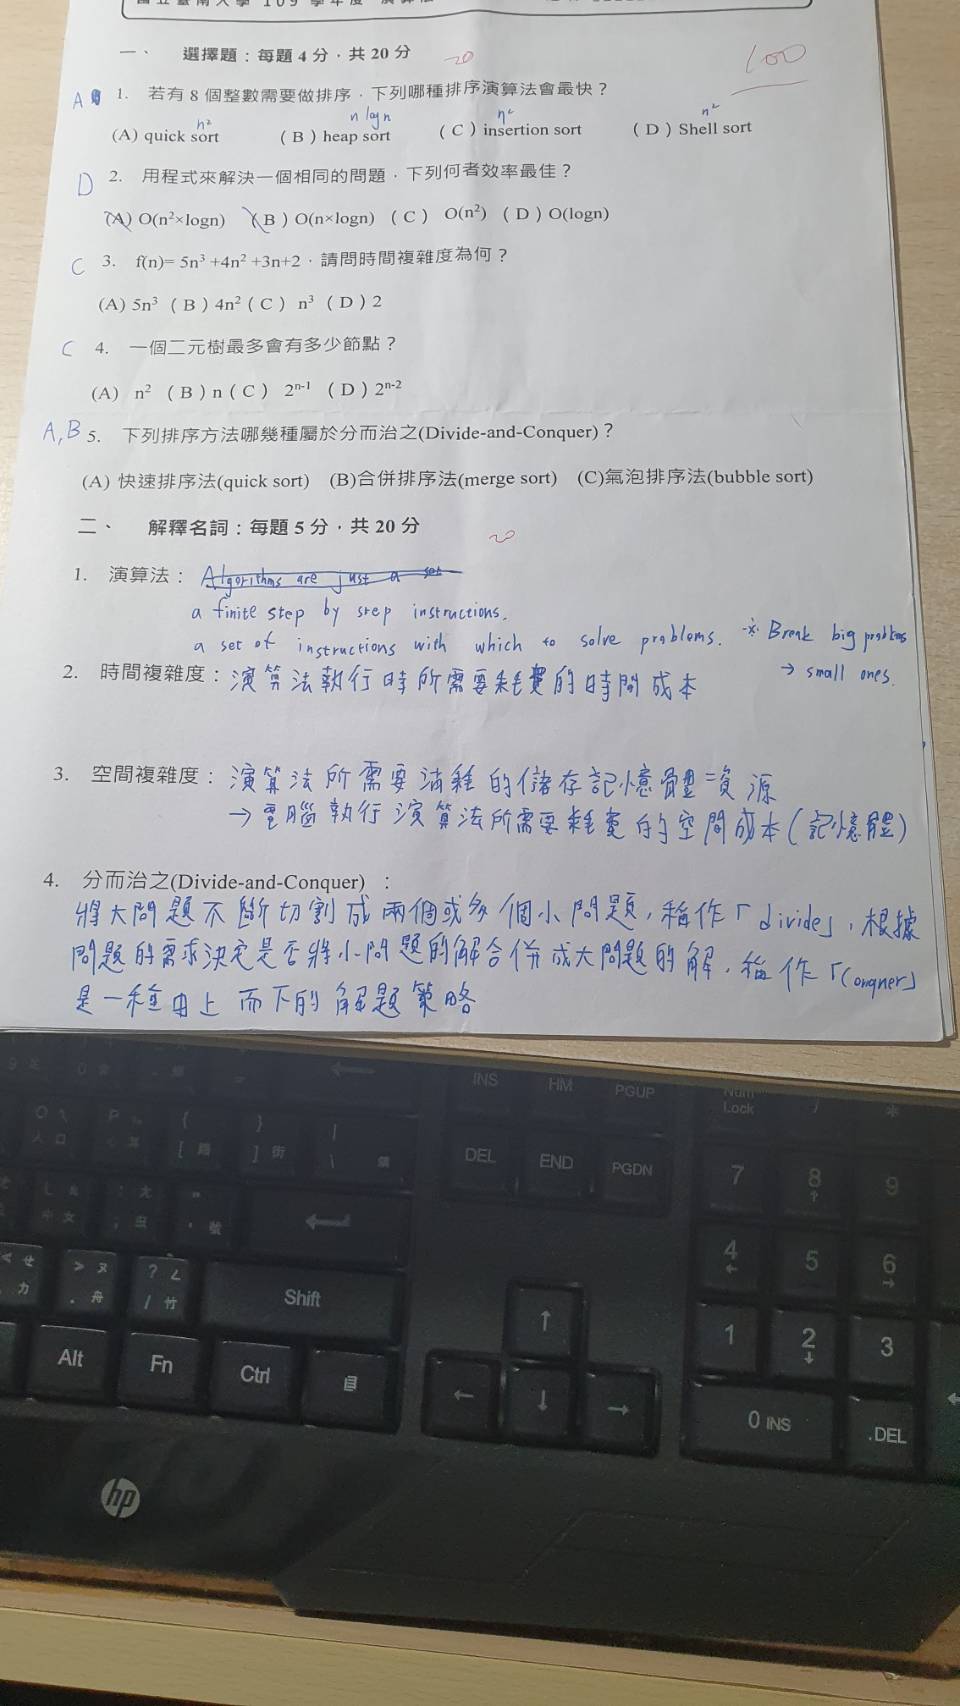 一、 選擇題：每題 4 分，共 20 分
20
100
A 1. 若有 8 個整數需要做排序，下列哪種排序演算法會最快？
n² n log n n² n²
(A) quick sort （B）heap sort （C）insertion sort （D）Shell sort
D 2. 用程式來解決一個相同的問題，下列何者效率最佳？
(A) O(n²×logn) （B）O(n×logn) （C） O(n²) （D）O(logn)
C 3. f(n)= 5n³ +4n² +3n+2，請問時間複雜度為何？
(A) 5n³ （B）4n²（C） n³ （D）2
C 4. 一個二元樹最多會有多少節點？
(A) n² （B）n（C） 2ⁿ⁻¹ （D）2ⁿ⁻²
A,B 5. 下列排序方法哪幾種屬於分而治之(Divide-and-Conquer)？
(A) 快速排序法(quick sort) (B)合併排序法(merge sort) (C)氣泡排序法(bubble sort)
二、 解釋名詞：每題 5 分，共 20 分
20
1. 演算法： Algorithms are just a set
a finite step by step instructions.
a set of instructions with which to solve problems. ※ Break big problems
→ small ones.
2. 時間複雜度：演算法執行時所需要耗費的時間成本
3. 空間複雜度：演算法所需要消耗的儲存記憶體資源
→ 電腦執行演算法所需要耗費的空間成本(記憶體)
4. 分而治之(Divide-and-Conquer) ：
將大問題不斷切割成兩個或多個小問題，稱作「divide」，根據
問題的需求決定是否將小問題的解合併成大問題的解，稱作「Conquer」
是一種由上而下的解題策略
INS HM PGUP Num Lock / *
DEL END PGDN 7 8 9
4 5 6
Shift
1 2 3
Alt Fn Ctrl
0 INS .DEL
hp